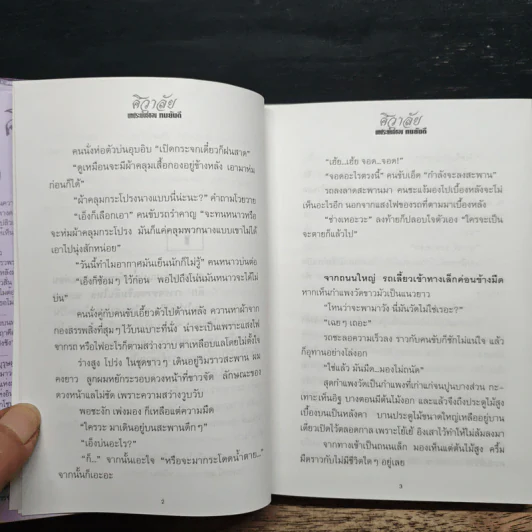 ศิวาลัย
คนนั่งห่อตัวบ่นอุบอิบ “เปิดกระจกเดี๋ยวก็ฝนสาด”
“ดูเหมือนจะมีผ้าคลุมเสื้อกองอยู่ข้างหลัง เอามาห่ม
ก่อนก็ได้”
“ผ้าคลุมกระโปรงนางแบบนี่น่ะนะ?” คำถามโวยวาย
“เอ็งก็เลือกเอา” คนขับรถรำคาญ “จะทนหนาวหรือ
จะห่มผ้าคลุมกระโปรง มันก็แค่คลุมพวกนางแบบเขาไม่ได้
เอาไปนุ่งสักหน่อย”
“วันนี้ทำไมอากาศมันเย็นนักก็ไม่รู้” คนหนาวบ่นต่อ
“เอ็งก็ซ้อมๆ ไว้ก่อน พอไปถึงโน่นมันหนาวจะได้ไม่
บ่น”
คนนั่งคู่กับคนขับเอี้ยวตัวไปด้านหลัง ควานหาผ้าจาก
กองสรรพสิ่งที่สุมๆ ไว้บนเบาะที่นั่ง น่าจะเป็นเพราะแสงไฟ
จากรถ หรือไฟอะไรก็ตามสว่างวาบ ตาเหลือบแลโดยไม่ตั้งใจ
ร่างสูง โปร่ง ในชุดขาวๆ เดินอยู่ริมราวสะพาน ผม
คงยาว ลูกผมหยิกระกรอบดวงหน้าที่ขาวจัด ลักษณะของ
ดวงหน้าแลไม่ชัด เพราะความสว่างวูบวับ
พอชะงัก เพ่งมอง ก็เหลือแต่ความมืด
“ใครวะ มาเดินอยู่บนสะพานดึกๆ”
“เอ็งบ่นอะไร?”
“ก็...” จากนั้นเอะใจ “หรือจะมากระโดดน้ำตาย...”
จากนั้นก็เอะอะ
2
ศิวาลัย
“เฮ้ย...เฮ้ย จอด...จอด!”
“จอดอะไรตรงนี้” คนขับเอ็ด “กำลังจะลงสะพาน”
รถลงลาดสะพานมา คนชะแง้มองไปเบื้องหลังจะไม่
เห็นอะไรอีก นอกจากแสงไฟของรถที่ตามมาเบื้องหลัง
“ช่างเหอะวะ” ลงท้ายก็ปลอบใจตัวเอง “ใครจะเป็น
จะตายก็แล้วไป”
จากถนนใหญ่ รถเลี้ยวเข้าทางเล็กค่อนข้างมืด
หากเห็นกำแพงวัดขาวมัวเป็นแนวยาว
“ไหนว่าจะพามาวัง นี่มันวัดไม่ใช่เรอะ?”
“เฉยๆ เถอะ”
รถชะลอความเร็วลง ราวกับคนขับก็ชักไม่แน่ใจ แล้ว
ก็อุทานอย่างโล่งอก
“ใช่แล้ว มันมืด...มองไม่ถนัด”
สุดกำแพงวัดเป็นกำแพงที่เก่าแก่จนปูนบางส่วน กะ-
เทาะเห็นอิฐ บางตอนมีต้นไม้งอก และแล้วจึงถึงประตูไม้สูง
เบื้องบนเป็นหลังคา บานประตูไม้ขนาดใหญ่เหลืออยู่บาน
เดียวเปิดไว้ตลอดกาล เพราะโย้เย้ อิงเสาไว้ทำให้ไม่ล้มลงมา
จากทางเข้าเป็นถนนเล็ก มองเห็นแต่ต้นไม้สูง ครึ้ม
มืดราวกับไม่มีชีวิตใดๆ อยู่เลย
3